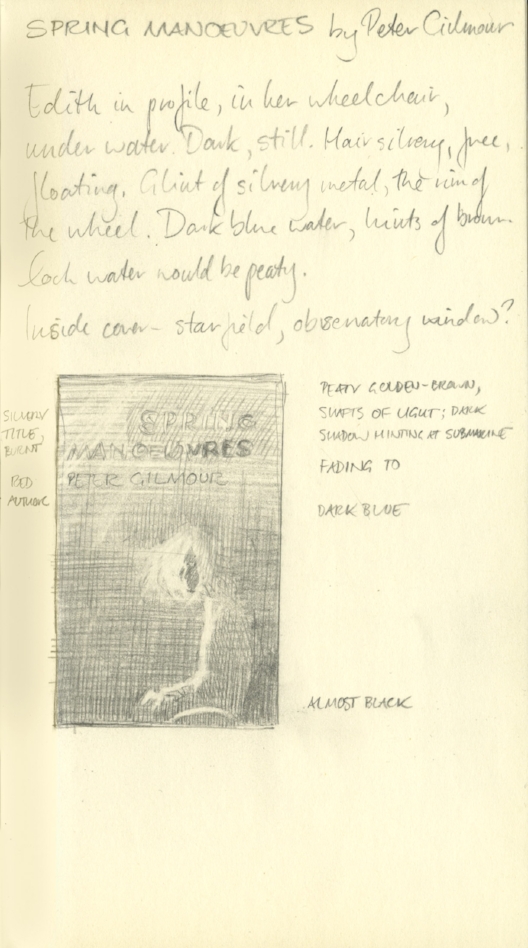 SPRING MANOEUVRES by Peter Gilmour
Edith in profile, in her wheelchair,
under water. Dark, still. Hair silvery, free,
floating. Glint of silvery metal, the rim of
the wheel. Dark blue water, hints of brown.
Loch water would be peaty.
Inside cover - starfield, observatory window?
SILVERY
TITLE,
BURNT
RED
AUTHOR
SPRING
MANOEUVRES
PETER GILMOUR
PEATY GOLDEN-BROWN,
SHAFTS OF LIGHT; DARK
SHADOW HINTING AT SUBMARINE
FADING TO
DARK BLUE
ALMOST BLACK